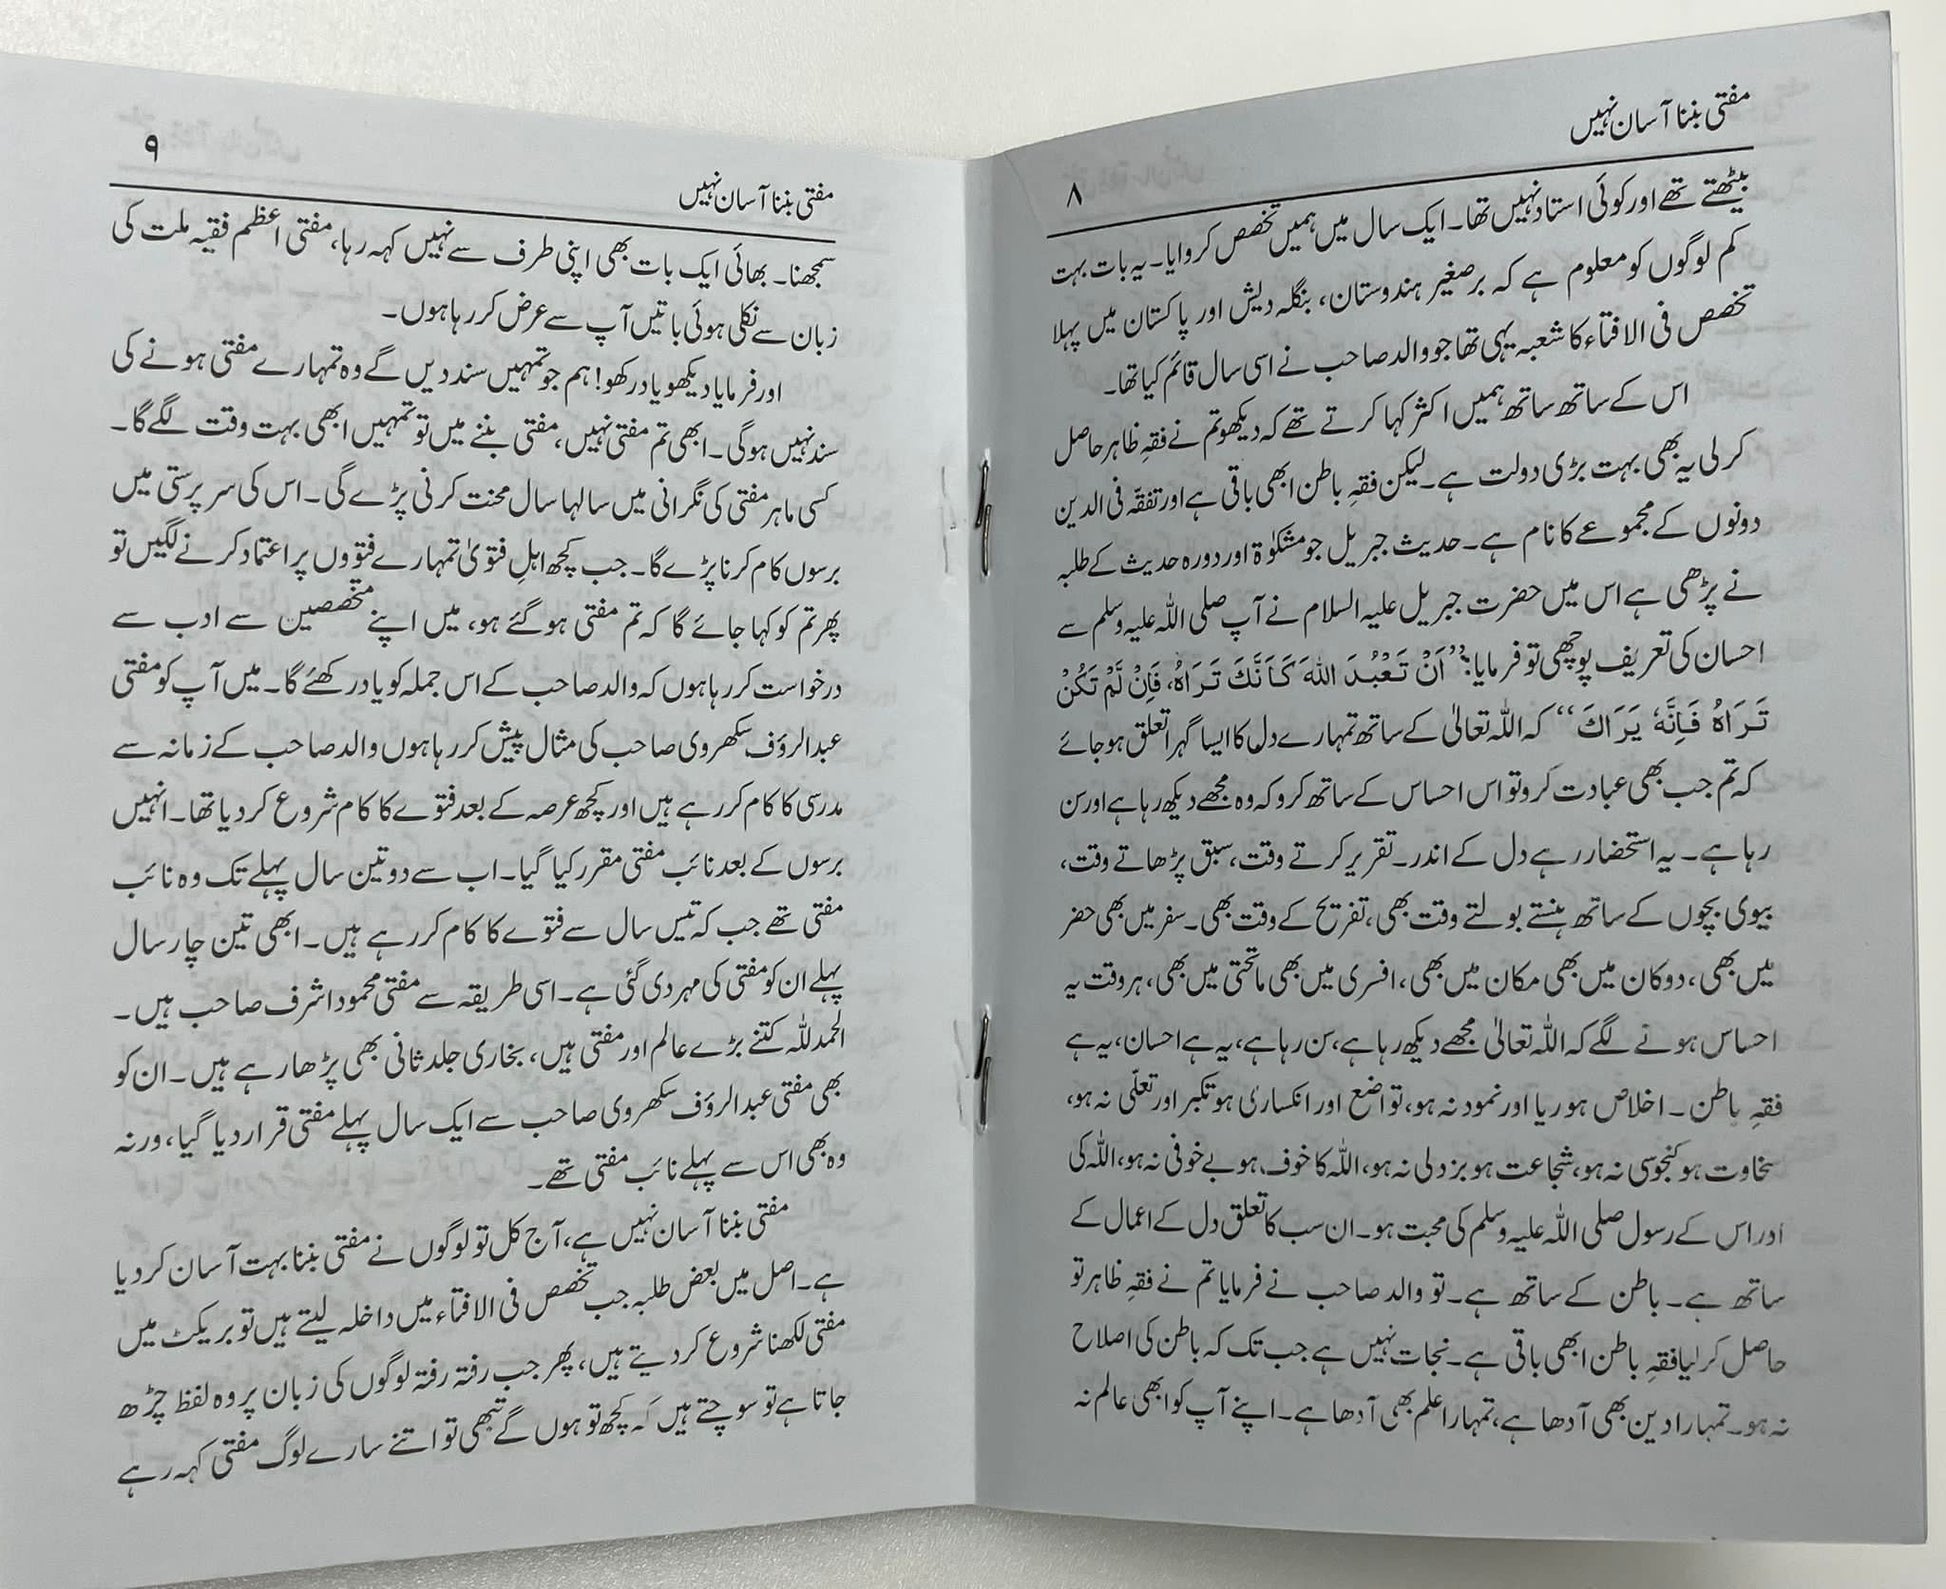 مفتی بننا آسان نہیں
۸
بیٹھتے تھے اور کوئی استاد نہیں تھا۔ ایک سال میں ہمیں تخصص کروایا۔ یہ بات بہت
کم لوگوں کو معلوم ہے کہ برصغیر ہندوستان، بنگلہ دیش اور پاکستان میں پہلا
تخصص فی الافتاء کا شعبہ یہی تھا جو والد صاحب نے اسی سال قائم کیا تھا۔
اس کے ساتھ ساتھ ہمیں اکثر کہا کرتے تھے کہ دیکھو تم نے فقہِ ظاہر حاصل
کر لی یہ بھی بہت بڑی دولت ہے۔ لیکن فقہِ باطن ابھی باقی ہے اور تفقّہ فی الدین
دونوں کے مجموعے کا نام ہے۔ حدیث جبریل جو مشکوٰۃ اور دورہ حدیث کے طلبہ
نے پڑھی ہے اس میں حضرت جبریل علیہ السلام نے آپ صلی اللہ علیہ وسلم سے
احسان کی تعریف پوچھی تو فرمایا: ’’اَنْ تَعْبُدَ اللّٰهَ كَاَنَّكَ تَرَاهُ، فَاِنْ لَّمْ تَكُنْ
تَرَاهُ فَاِنَّهٗ يَرَاكَ‘‘ کہ اللہ تعالیٰ کے ساتھ تمہارے دل کا ایسا گہرا تعلق ہو جائے
کہ تم جب بھی عبادت کرو تو اس احساس کے ساتھ کرو کہ وہ مجھے دیکھ رہا ہے اور سن
رہا ہے۔ یہ استحضار رہے دل کے اندر۔ تقریر کرتے وقت، سبق پڑھاتے وقت،
بیوی بچوں کے ساتھ ہنستے بولتے وقت بھی، تفریح کے وقت بھی۔ سفر میں بھی حضر
میں بھی، دوکان میں بھی مکان میں بھی، افسری میں بھی ماتحتی میں بھی، ہر وقت یہ
احساس ہونے لگے کہ اللہ تعالیٰ مجھے دیکھ رہا ہے، سن رہا ہے، یہ ہے احسان، یہ ہے
فقہِ باطن۔ اخلاص ہو ریا اور نمود نہ ہو، تواضع اور انکساری ہو تکبر اور تعلّی نہ ہو،
سخاوت ہو کنجوسی نہ ہو، شجاعت ہو بزدلی نہ ہو، اللہ کا خوف ہو بے خوفی نہ ہو، اللہ کی
اور اس کے رسول صلی اللہ علیہ وسلم کی محبت ہو۔ ان سب کا تعلق دل کے اعمال کے
ساتھ ہے۔ باطن کے ساتھ ہے۔ تو والد صاحب نے فرمایا تم نے فقہِ ظاہر تو
حاصل کر لیا فقہِ باطن ابھی باقی ہے۔ نجات نہیں ہے جب تک کہ باطن کی اصلاح
نہ ہو۔ تمہارا دین بھی آدھا ہے، تمہارا علم بھی آدھا ہے۔ اپنے آپ کو ابھی عالم نہ
مفتی بننا آسان نہیں
۹
سمجھنا۔ بھائی ایک بات بھی اپنی طرف سے نہیں کہہ رہا، مفتی اعظم فقیہ ملت کی
زبان سے نکلی ہوئی باتیں آپ سے عرض کر رہا ہوں۔
اور فرمایا دیکھو یاد رکھو! ہم جو تمہیں سند دیں گے وہ تمہارے مفتی ہونے کی
سند نہیں ہوگی۔ ابھی تم مفتی نہیں، مفتی بننے میں تو تمہیں ابھی بہت وقت لگے گا۔
کسی ماہر مفتی کی نگرانی میں سالہا سال محنت کرنی پڑے گی۔ اس کی سرپرستی میں
برسوں کام کرنا پڑے گا۔ جب کچھ اہلِ فتویٰ تمہارے فتووں پر اعتماد کرنے لگیں تو
پھر تم کو کہا جائے گا کہ تم مفتی ہو گئے ہو، میں اپنے متخصصین سے ادب سے
درخواست کر رہا ہوں کہ والد صاحب کے اس جملہ کو یاد رکھئے گا۔ میں آپ کو مفتی
عبدالرؤف سکھروی صاحب کی مثال پیش کر رہا ہوں والد صاحب کے زمانہ سے
مدرسی کا کام کر رہے ہیں اور کچھ عرصہ کے بعد فتوے کا کام شروع کر دیا تھا۔ انہیں
برسوں کے بعد نائب مفتی مقرر کیا گیا۔ اب سے دو تین سال پہلے تک وہ نائب
مفتی تھے جب کہ تیس سال سے فتوے کا کام کر رہے ہیں۔ ابھی تین چار سال
پہلے ان کو مفتی کی مہر دی گئی ہے۔ اسی طریقہ سے مفتی محمود اشرف صاحب ہیں۔
الحمدللہ کتنے بڑے عالم اور مفتی ہیں، بخاری جلد ثانی بھی پڑھا رہے ہیں۔ ان کو
بھی مفتی عبدالرؤف سکھروی صاحب سے ایک سال پہلے مفتی قرار دیا گیا، ورنہ
وہ بھی اس سے پہلے نائب مفتی تھے۔
مفتی بننا آسان نہیں ہے، آج کل تو لوگوں نے مفتی بننا بہت آسان کر دیا
ہے۔ اصل میں بعض طلبہ جب تخصص فی الافتاء میں داخلہ لیتے ہیں تو بریکٹ میں
مفتی لکھنا شروع کر دیتے ہیں، پھر جب رفتہ رفتہ لوگوں کی زبان پر وہ لفظ چڑھ
جاتا ہے تو سوچتے ہیں کہ کچھ تو ہوں گے تبھی تو اتنے سارے لوگ مفتی کہہ رہے